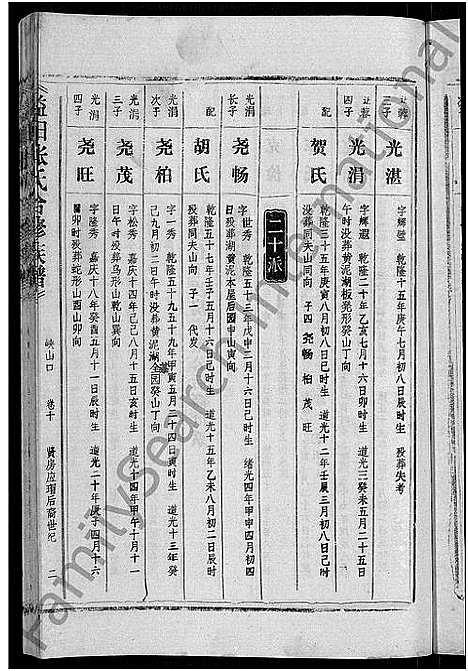 让蓉
三子
光湛
字辉璧 乾隆十五年庚午七月初八日辰时生 殁葬失考
让蓉
四子
光涓
字辉遐 乾隆二十年乙亥七月十六日卯时生 道光三年癸未五月二十五
午时没葬黄泥湖板凳形癸山丁向
配
贺氏
乾隆三十五年庚寅八月初八日已时生 道光十二年壬辰三月初八日时
没葬同夫山同向 子四 尧畅 柏 茂 旺
二十派
光涓
长子
尧畅
字世秀 乾隆五十三年戊申二月十六日已时生 绪光四年甲申四月初四
日殁葬湖黄泥本屋后园申山寅向
配
胡氏
乾隆五十七年壬子五月十六日已时生 道光十五年乙未八月初二日
殁葬同夫山同向 子一 代发
光涓
次子
尧柏
字一秀 乾隆五十九年甲寅五月二十四日寅时生 道光十三年癸
巳九月初二日午时没葬黄泥湖全园癸山丁向
光涓
三子
尧茂
字松秀 嘉庆十四年己巳八月十五日亥时生 道光十四年甲午十月十一
日午时殁葬乌形山乾山巽向
光涓
四子
尧旺
字 嘉庆十八年癸酉五月十一日辰时生 道光二十年庚子四月十六
日卯时殁葬蛇形山酉山卯向
益阳张氏合修族谱
峡山口
卷十
贤房应瑄后裔世纪
二
FamilySearch International